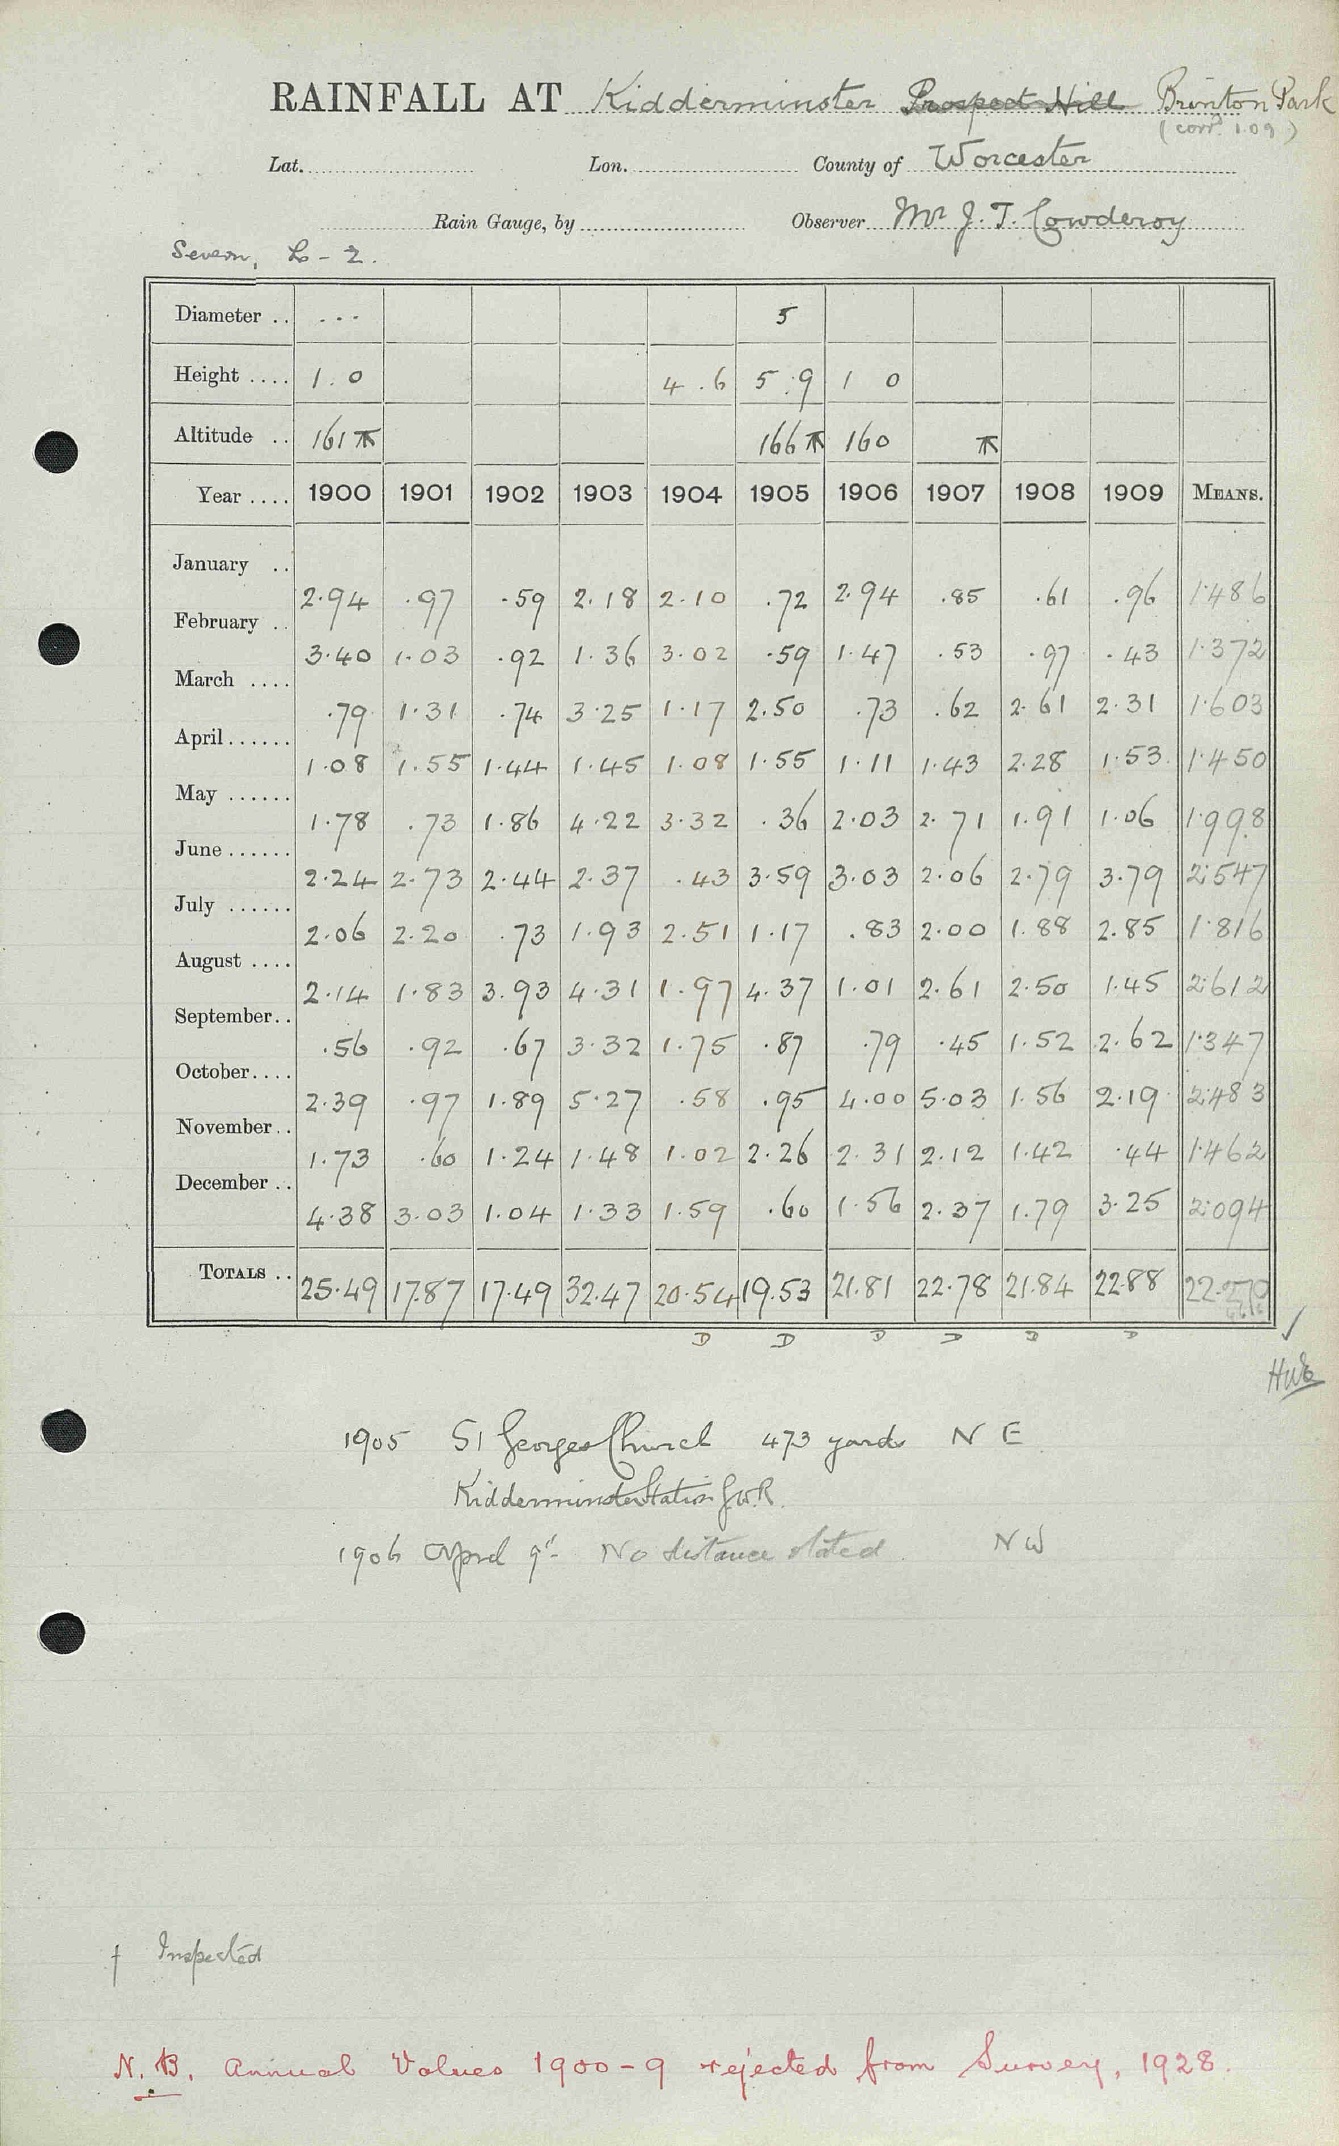 RAINFALL AT Kidderminster Prospect Hill Brinton Park
(corrd. 1.09)
Lat. Lon. County of Worcester
Rain Gauge, by Observer Mr J. T. Cowderoy
Severn, L - 2.
Diameter .. - - - 5
Height .... 1 . 0 4 . 6 5 . 9 1 0
Altitude .. 161 166 160
Year .... 1900 1901 1902 1903 1904 1905 1906 1907 1908 1909 MEANS.
January .. 2.94 .97 .59 2.18 2.10 .72 2.94 .85 .61 .96 1.486
February .. 3.40 1.03 .92 1.36 3.02 .59 1.47 .53 .97 .43 1.372
March .... .79 1.31 .74 3.25 1.17 2.50 .73 .62 2.61 2.31 1.603
April ...... 1.08 1.55 1.44 1.45 1.08 1.55 1.11 1.43 2.28 1.53 1.450
May ...... 1.78 .73 1.86 4.22 3.32 .36 2.03 2.71 1.91 1.06 1.998
June ...... 2.24 2.73 2.44 2.37 .43 3.59 3.03 2.06 2.79 3.79 2.547
July ...... 2.06 2.20 .73 1.93 2.51 1.17 .83 2.00 1.88 2.85 1.816
August .... 2.14 1.83 3.93 4.31 1.97 4.37 1.01 2.61 2.50 1.45 2.612
September .. .56 .92 .67 3.32 1.75 .87 .79 .45 1.52 2.62 1.347
October .... 2.39 .97 1.89 5.27 .58 .95 4.00 5.03 1.56 2.19 2.483
November .. 1.73 .60 1.24 1.48 1.02 2.26 2.31 2.12 1.42 .44 1.462
December .. 4.38 3.03 1.04 1.33 1.59 .60 1.56 2.37 1.79 3.25 2.094
TOTALS .. 25.49 17.87 17.49 32.47 20.54 19.53 21.81 22.78 21.84 22.88 22.270
D D D D D D
1905 St Georges Church 473 yards N E
Kidderminster Station G.W.R.
1906 April 9th No distance stated. N W
† Inspected
N.B. Annual Values 1900-9 rejected from Survey, 1928.